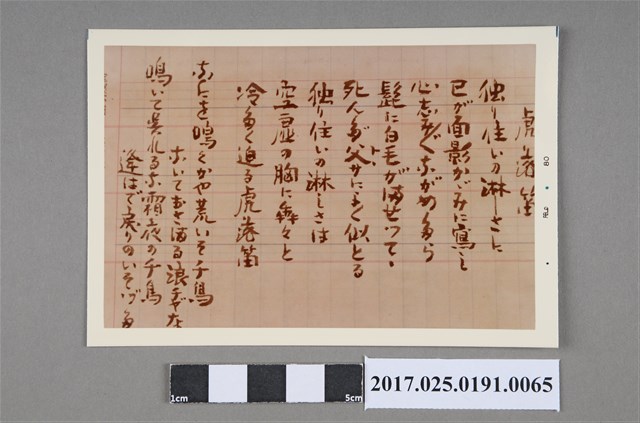 虎落笛
独り住いの淋しさに
己が面影かゞみに寫し
心志づくながめたら
髭に白毛がませつて、
死んだ父サによく似とる
独り住いの淋しさは
空虚の胸に犇々と
冷たく迫る虎落笛
なにを鳴くかや荒いそ千鳥
ないておさまる浪ぢやな
鳴いて呉れるな霜夜の千鳥
逢はで戻りの
80
1cm
5cm
2017.025.0191.0065